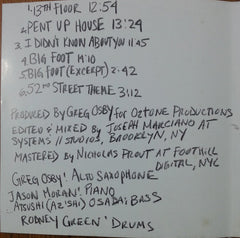 1. 13TH FLOOR 12:54
2. PENT UP HOUSE 13:24
3. I DIDN'T KNOW ABOUT YOU 11:45
4. BIG FOOT 14:10
5. BIG FOOT (EXCERPT) 2:42
6. 52ND STREET THEME 3:12
PRODUCED BY GREG OSBY FOR OZTONE PRODUCTIONS
EDITED & MIXED BY JOSEPH MARCIANO AT
SYSTEMS II STUDIOS, BROOKLYN, NY
MASTERED BY NICHOLAS PROUT AT FOOTHILL
DIGITAL, NYC
GREG OSBY: ALTO SAXOPHONE
JASON MORAN: PIANO
ATSUSHI (AZ'SHI) OSADA: BASS
RODNEY GREEN: DRUMS